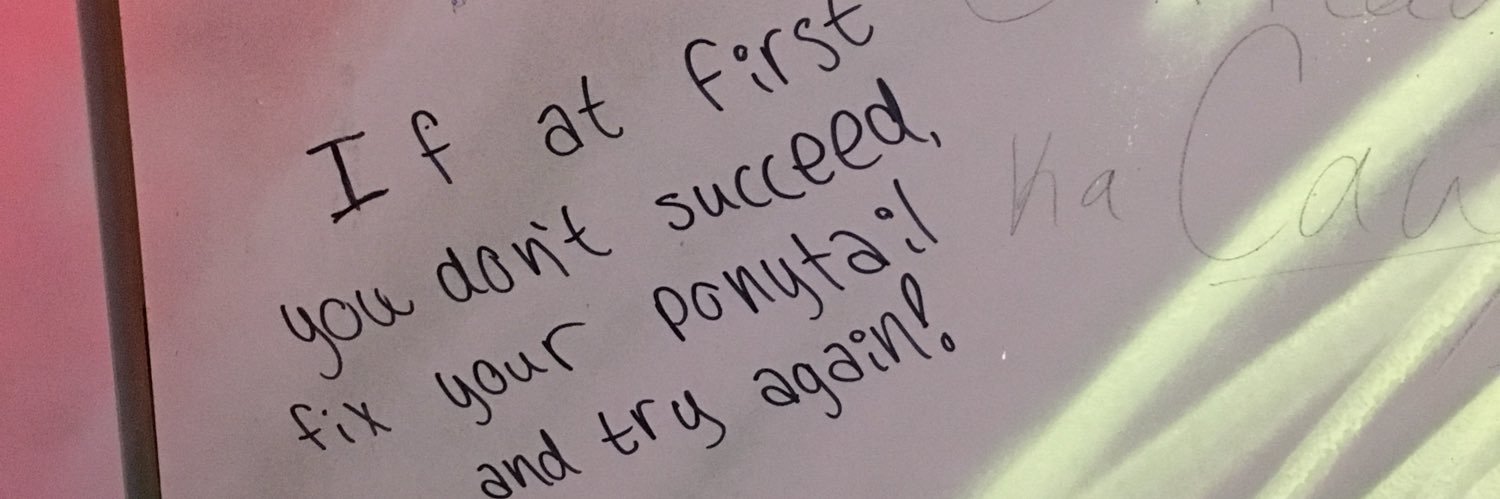 If at first
you don't succeed,
fix your ponytail
and try again!